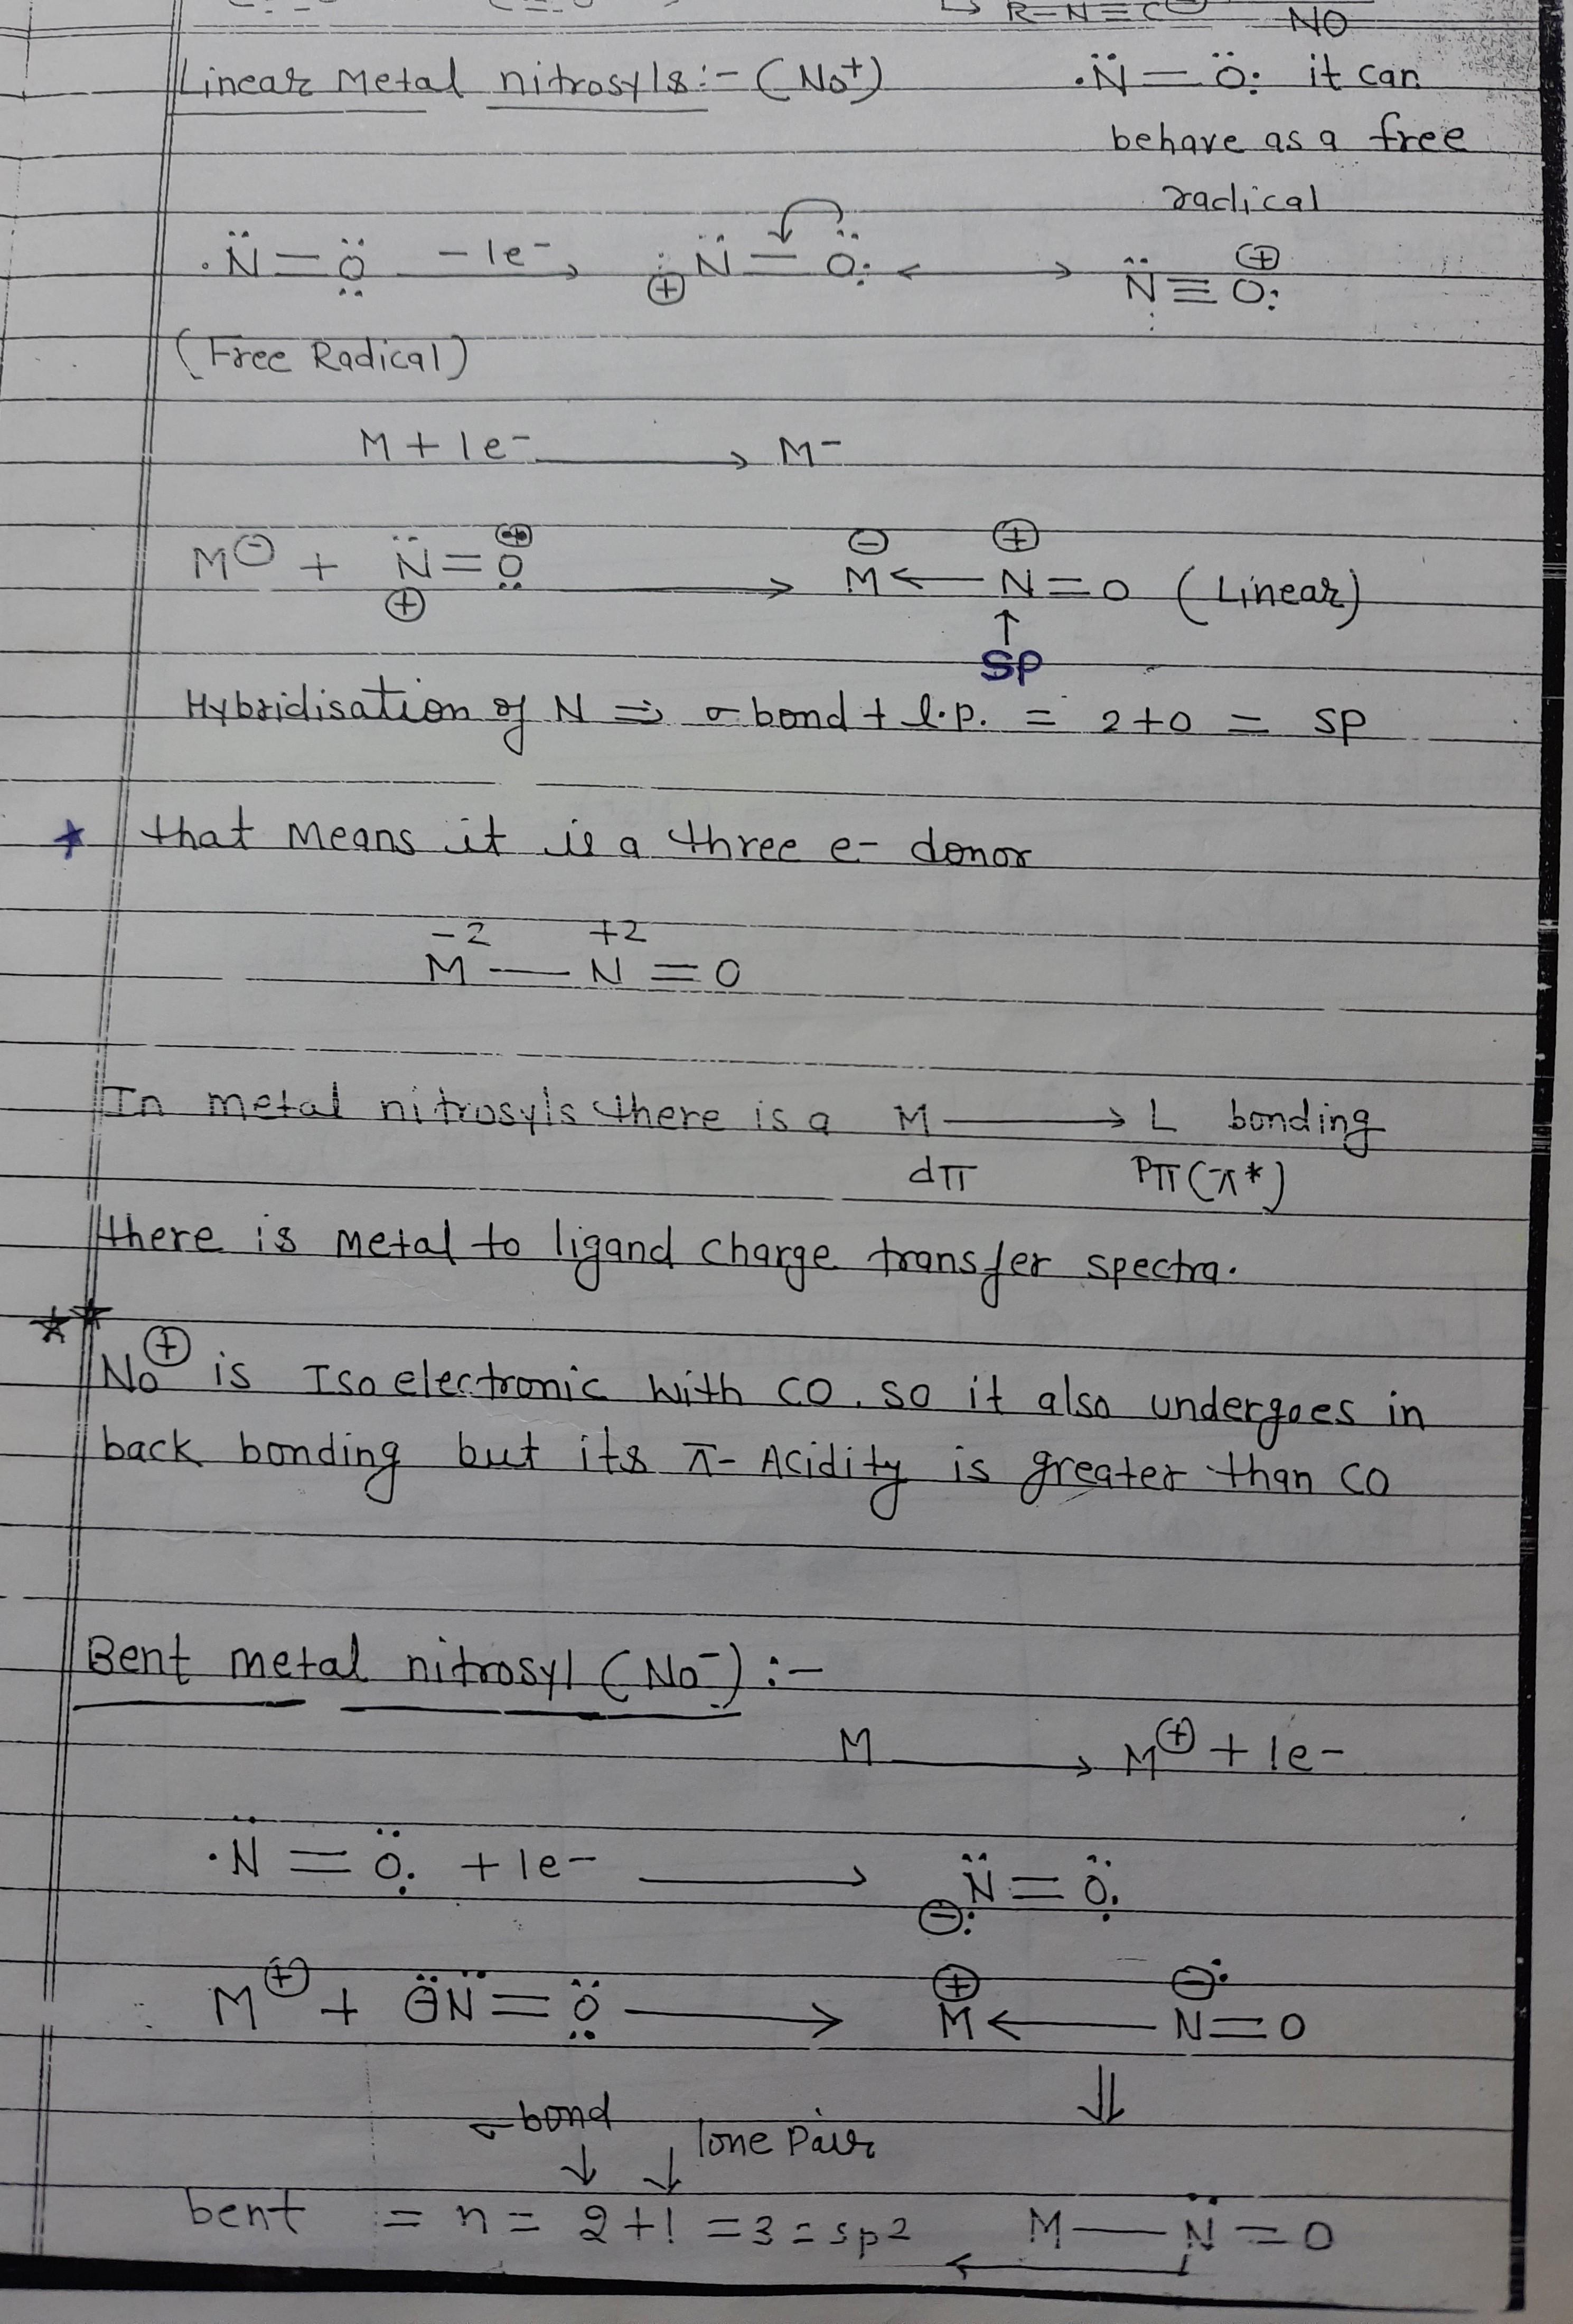 R-N≡C⊖
NO
Linear Metal nitrosyls:-(No⁺)
·N̈=Ö: it can
behave as a free
radical
·N̈=Ö̤ -1e⁻→ ⊕N̈=Ö: ⟷ N̈≡O:⊕
(Free Radical)
M+1e⁻ ⟶ M⁻
M⊖ + N̈=O ⟶ M⟵N=O (Linear)
⊕
↑
SP
Hybridisation of N ⇒ σ-bond+l.p. = 2+0 = SP
* that Means it is a three e- donor
-2 +2
M—N=O
In metal nitrosyls there is a M ⟶ L bonding
dπ Pπ(π*)
there is Metal to ligand charge transfer spectra.
**
No⊕ is Isoelectronic with CO. so it also undergoes in
back bonding but its π-Acidity is greater than CO
Bent metal nitrosyl(No⁻):-
M ⟶ M⊕+1e-
·N̈=Ö: +1e- ⟶ ⊖:N̈=Ö:
M⊕ + ⊖N̈=Ö̤ ⟶ M⟵N=O
⊕ ⊖:
⇓
σ-bond
↓ ↓ lone Pair
bent = n = 2+1 =3=sp2 M—N̈=O